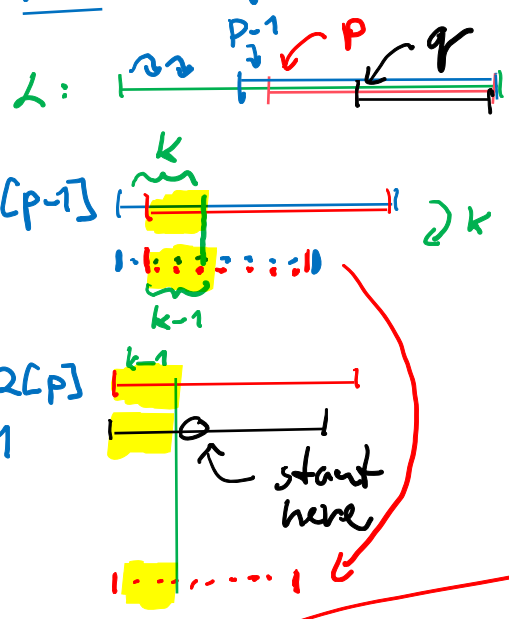 p-1 p q
L:
k
[p-1] k
k-1
k-1
2[p]
1
start
here